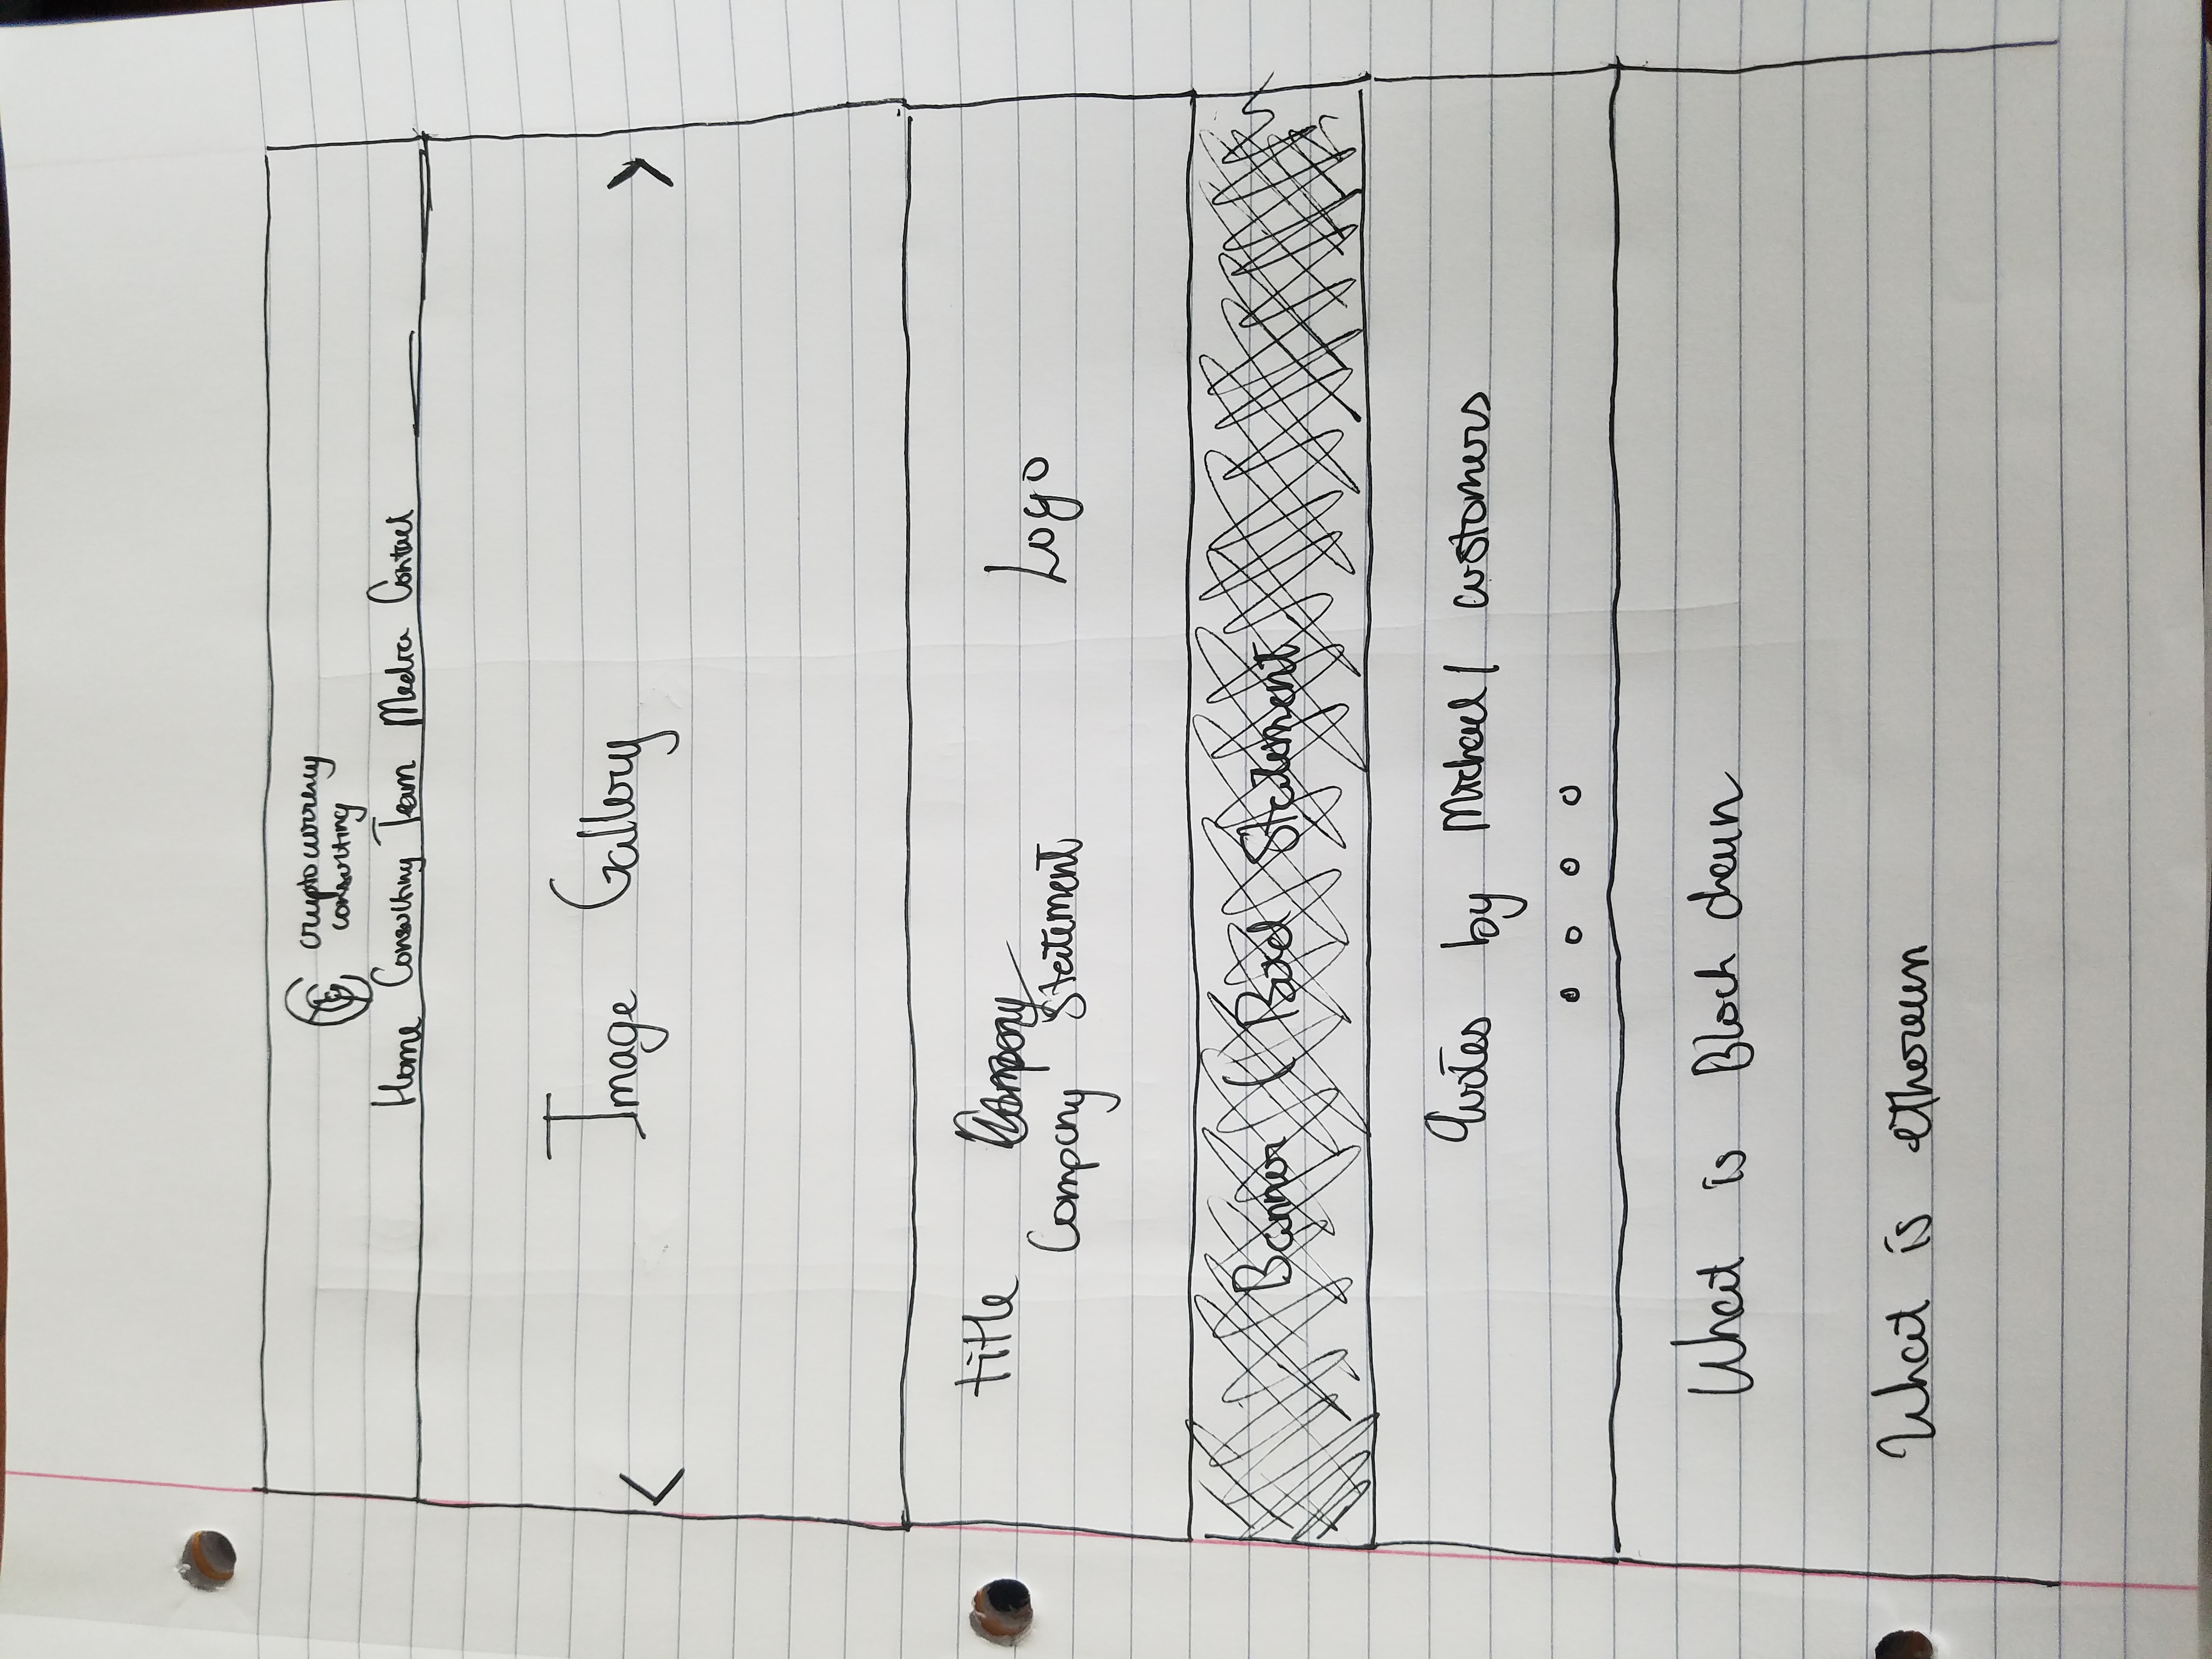 cryptocurrency
consulting
Home Consulting Team Media Contact
Image Gallery
< >
title
Company Statement
Logo
Banner / Statement
Quotes by Michael / customers
What is Block chain
What is ethereum